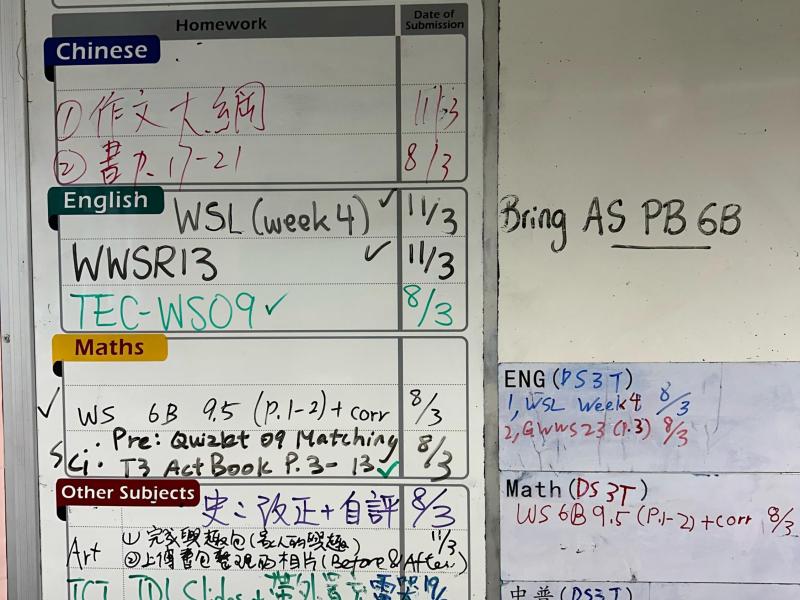 Homework Date of Submission
Chinese
① 作文大綱 11/3
② 書 P.17-21 8/3
English
WSL (week 4) ✓ 11/3
WWSR13 ✓ 11/3
TEC-WS09 ✓ 8/3
Maths
✓ WS 6B 9.5 (P.1-2) + corr 8/3
Sci: Pre: Quizlet 09 Matching 8/3
T3 ActBook P.3-13 ✓
Other Subjects
史：改正+自評 8/3
Art ① 完成興趣包 11/3
② 上傳書包整理的相片 (Before & After)
Bring AS PB 6B
ENG (DS3T)
1, WSL Week 4 8/3
2, GWWS23 (P.3) 8/3
Math (DS3T)
WS 6B 9.5 (P.1-2) + corr 8/3
中普 (DS3T)